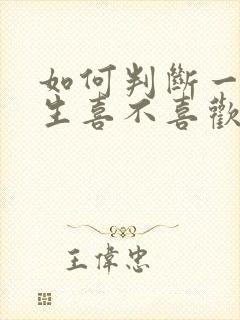 如何判斷一
生喜不喜歡
王偉忠